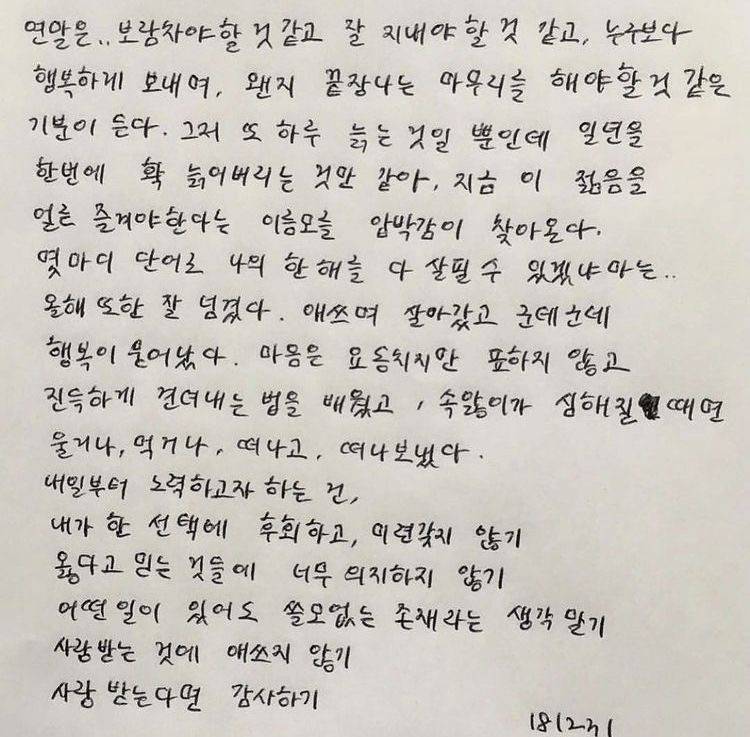 연말은.. 보람차야할 것 같고 잘 지내야 할 것 같고, 누구보다
행복하게 보내며, 왠지 끝장나는 마무리를 해야할 것 같은
기분이 든다. 그저 또 하루 늙는 것일 뿐인데 일년을
한번에 확 늙어버리는 것만 같아, 지금 이 젊음을
얼른 즐겨야한다는 이름모를 압박감이 찾아온다.
몇마디 단어로 나의 한 해를 다 살필 수 있겠냐마는..
올해 또한 잘 넘겼다. 애쓰며 살아갔고 군데군데
행복이 묻어났다. 마음은 요동치지만 표하지 않고
진득하게 견뎌내는 법을 배웠고, 속앓이가 심해질 때면
울거나, 먹거나, 떠나고, 떠나보냈다.
내일부터 노력하고자 하는 건,
내가 한 선택에 후회하고, 미련갖지 않기
옳다고 믿는 것들에 너무 의지하지 않기
어떤 일이 있어도 쓸모없는 존재라는 생각 말기
사랑받는 것에 애쓰지 않기
사랑 받는다면 감사하기
181231